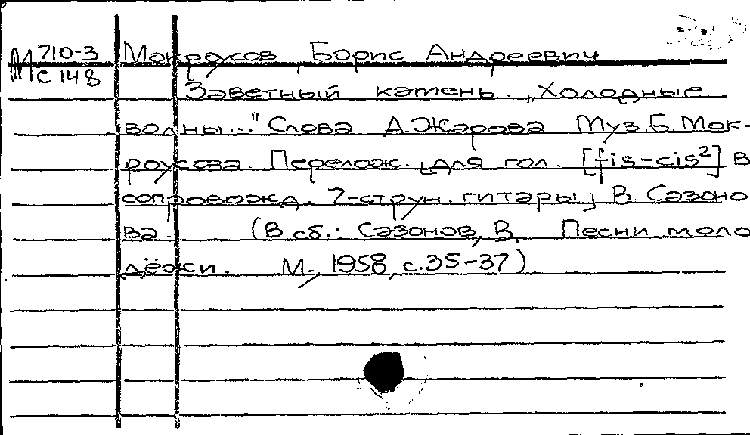 М 710-3 Мокроусов, Борис Андреевич
С 148
Заветный камень. „Холодные
волны..." Слова А.Жарова Муз.Б.Мок-
роусова. Перелож. [для гол. [fis-cis²] в
сопровожд. 7-струн. гитары] В. Сазоно
ва. (В сб.: Сазонов, В. Песни моло
дёжи. М., 1958, с.35-37)